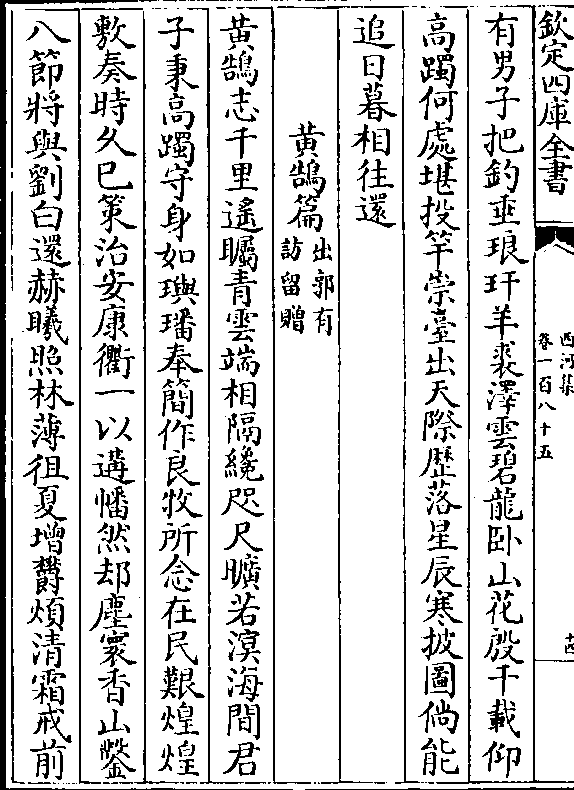 欽定四庫全書
西河集
卷一百八十五
十四
有男子把釣垂琅玕羊裘澤雲碧龍卧山花殷千載仰
高躅何處堪投竿崇臺出天際歴落星辰寒披圖倘能
追日暮相往還
黄鵠篇
出郭有
訪留贈
黄鵠志千里遙矚青雲端相隔纔咫尺曠若溟海間君
子秉高躅守身如璵璠奉簡作良牧所念在民艱煌煌
敷奏時久已策治安康衢一以遘幡然却塵寰香山鑿
八節將與劉白還赫曦照林薄徂夏增欝煩清霜戒前